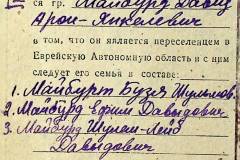 ся гр. Майбурд Давид
Арон-Янкелевич
в том, что он является переселенцем в
Еврейскую Автономную область и с ним
следует его семья в составе:
1. Майбурт Бузя Шулимов.
2. Майбурд Ефим Давыдович
3. Майбурд Шулим-Лейб
Давыдович